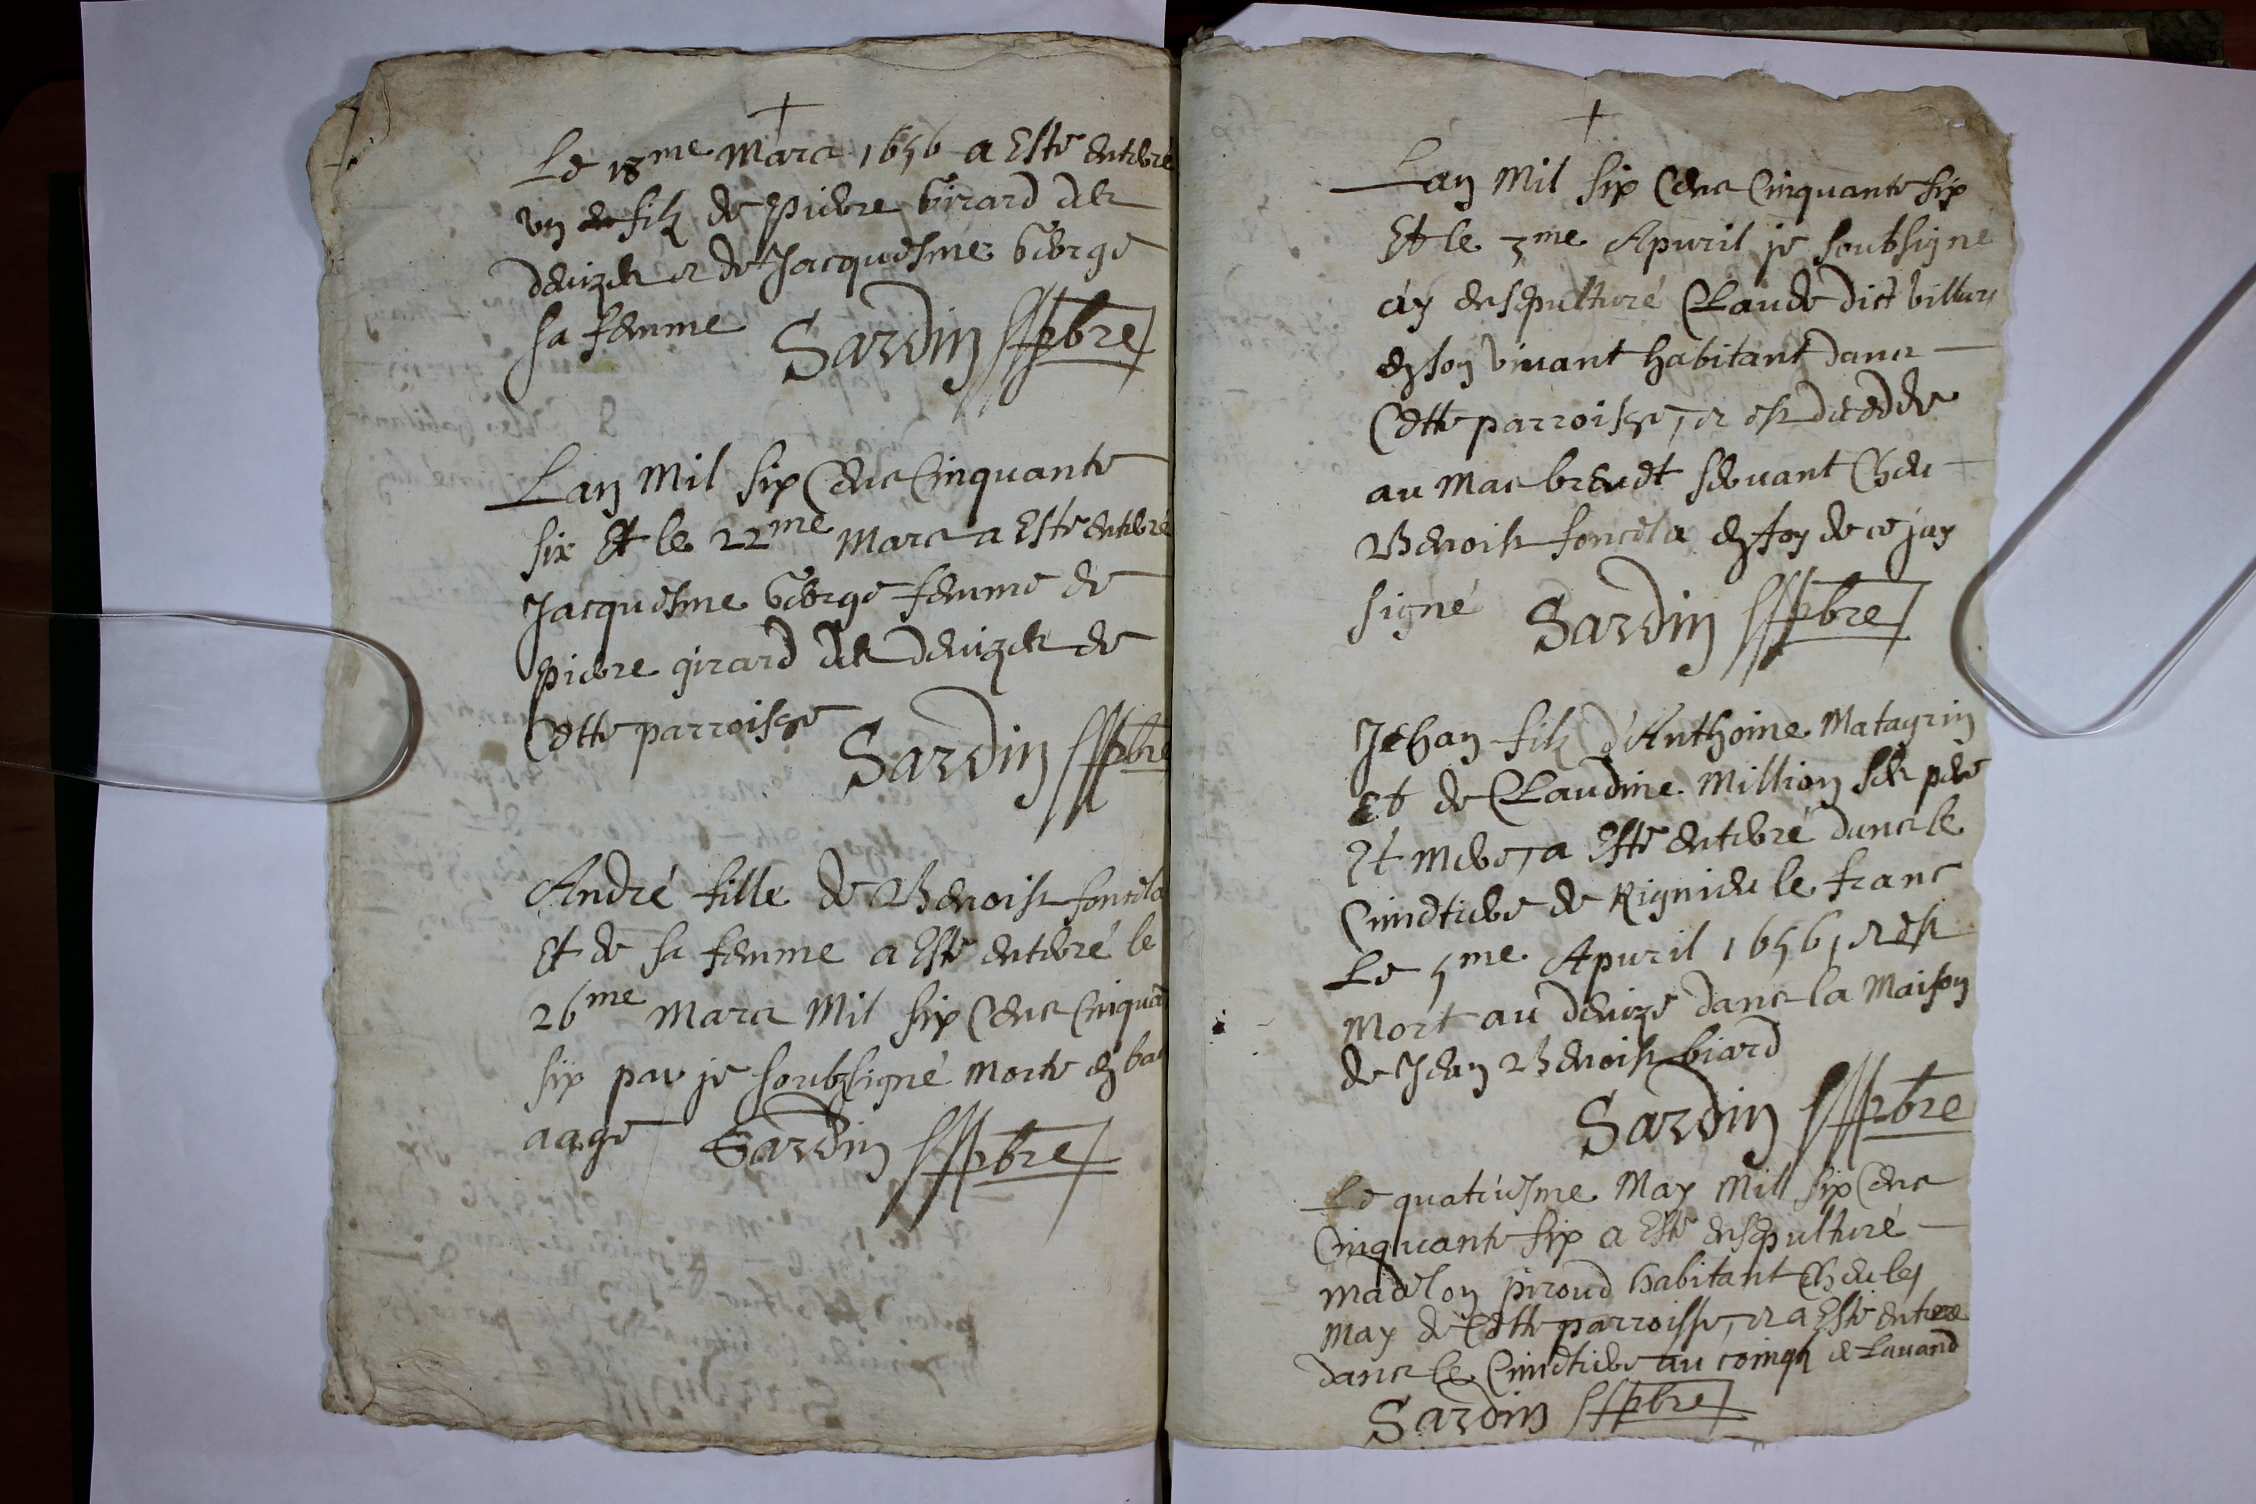 Le 18me Mars 1656 a Esté enterré
un filz de Pierre Girard des
deuizes et de Jacquesme George
sa femme Sardin pbre
Lan Mil six Cens Cinquante
six Et le 22me Mars a Esté enterré
Jacquesme George femme de
pierre girard des deuizes de
Cette parroisse
Sardin pbre
André fille de Benoist fontela
Et de sa femme a Esté enterré le
26me Mars Mil six Cens Cinquan
six par je soubsigné morte en bas
aage Sardin pbre
Lan Mil six Cens Cinquante six
Et le 3me Apuril je soubsigne
ay ensepulturé Claude dict villars
en son viuant habitant dans
Cette parroisse, et est decedde
au Mas breudt seruant Cheu
Benoist foncela en foy de ce jay
signé Sardin pbre
Jehan filz d'Anthoine Matagrin
Et de Claudine Million ses pere
Et mere, a Esté enterré dans le
Cimetiere de Rignieu le franc
Le 5me Apuril 1656, et est
Mort au deuize dans la Maison
de Jean Benoist biard
Sardin pbre
Le quatriesme May Mil six Cens
Cinquante six a Esté ensepulturé
madelon piroud habitant Cheu les
May de Cette parroisse, et a Esté enterre
dans le Cimetiere au coingt de Lauand
Sardin pbre